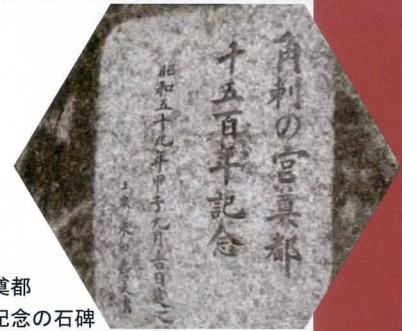 角刺の宮奠都
千五百年記念
昭和五十九年甲子九月吉日建之
奠都
記念の石碑